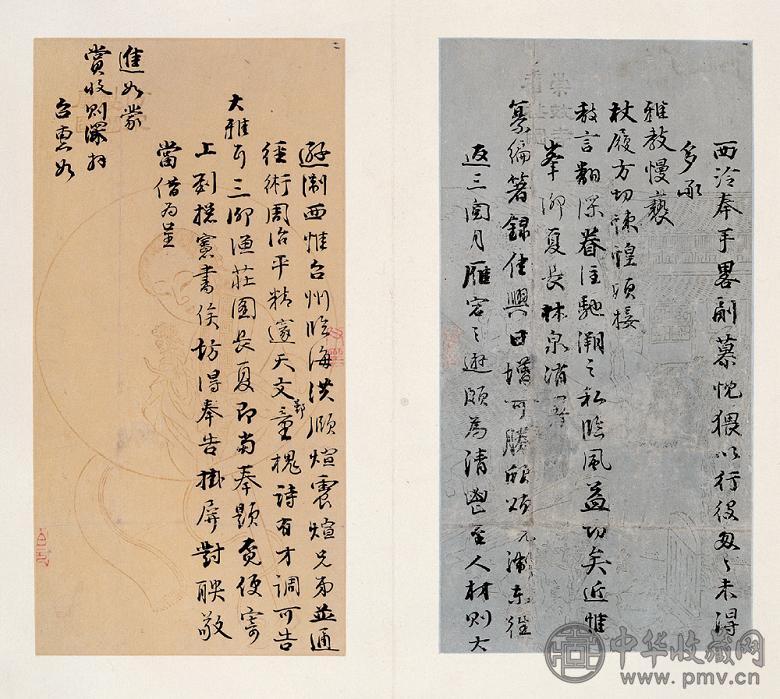 西泠奉手畧副慕忱猥以行役匆匆未得
多承
雅教慢褻
杖履方切悚惶頃接
教言翻深眷注馳溯之私臨風益切矣近惟
夏長林泉消
纂編著録佳興日增可勝頌元浦東往
返三匝月雁宕之遊頗為清至人材則大
遊浙西惟台州臨海洪頤煊震煊兄弟並通
經術周治平精邃天文鄞童槐詩有才調可告
大雅耳三御漁莊圖長夏即當奉題竟便寄
上刻撰憲書俟坊得奉告掛屏對联敬
當借为呈
進如蒙
賞收則深拜
台惠如
中华收藏网
www.pmv.cn